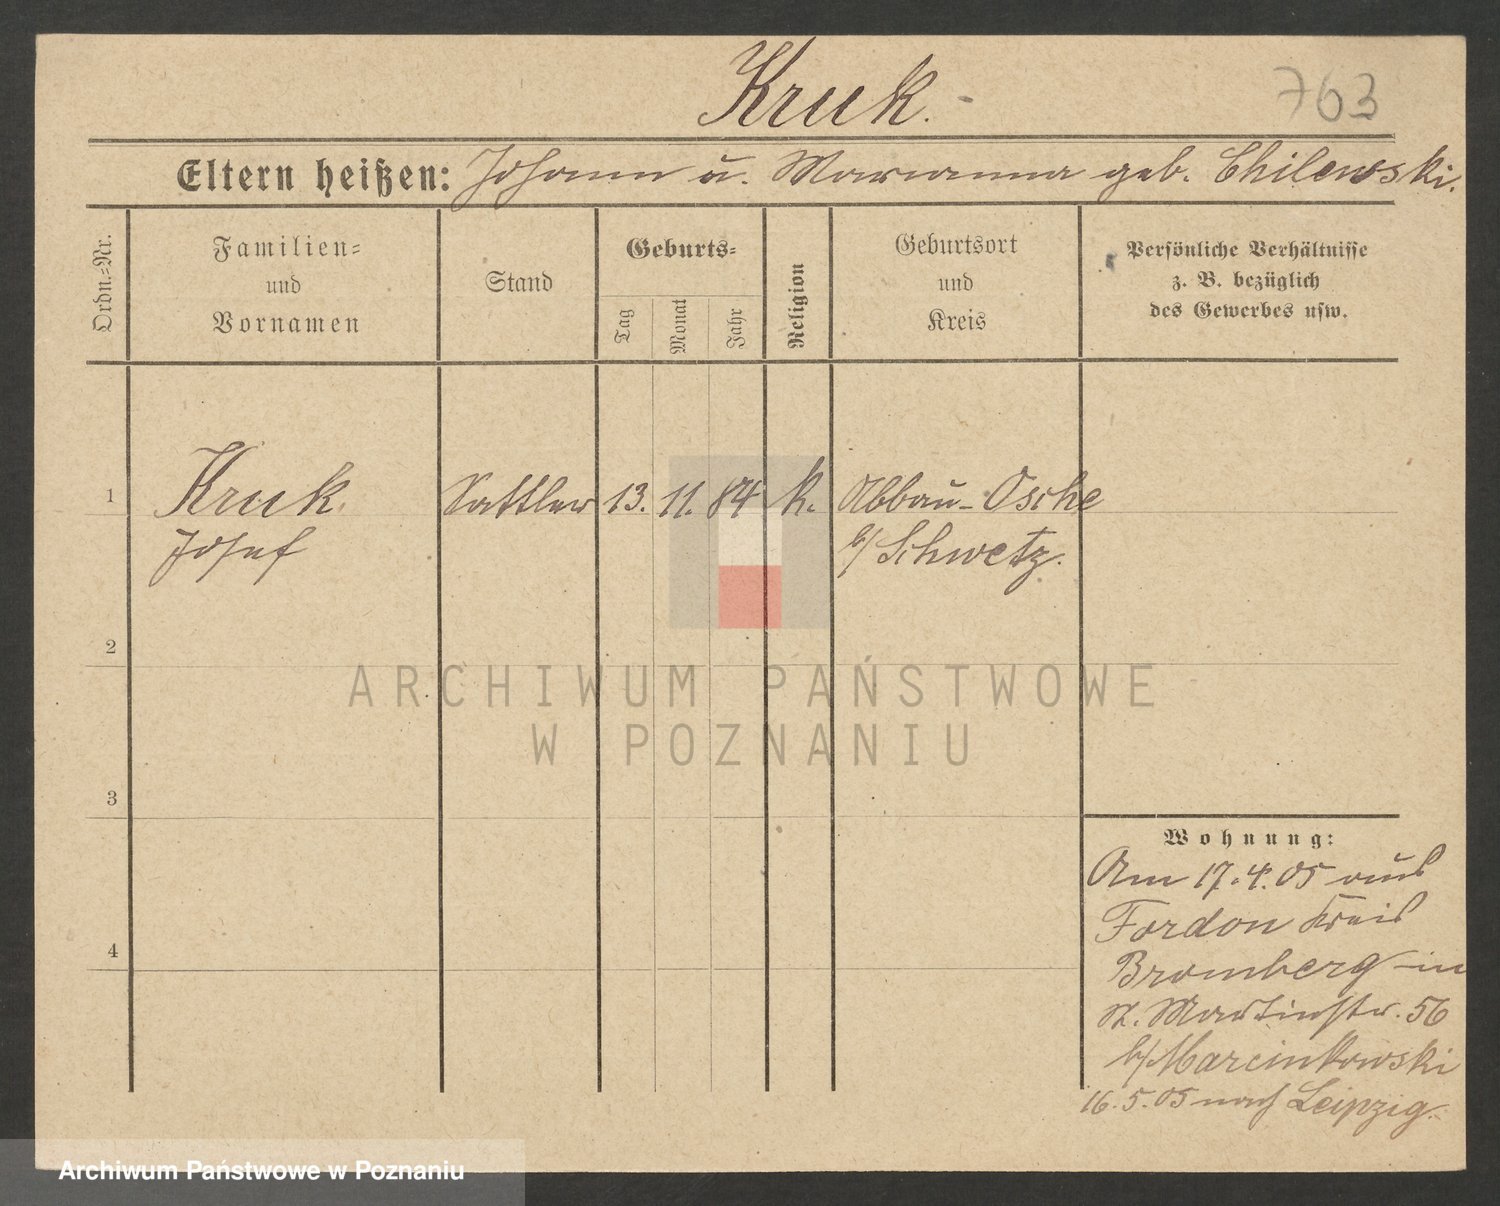 Kruk.
763
Eltern heißen: Johann u. Marianna geb. Chilewski.
Ordn.=Nr.
Familien=
und
Vornamen
Stand
Geburts=
Tag
Monat
Jahr
Religion
Geburtsort
und
Kreis
Persönliche Verhältnisse
z. B. bezüglich
des Gewerbes usw.
1
Kruk
Josef
Sattler
13.
11.
84
k.
Abbau-Osche
b/ Schwetz.
2
3
4
Wohnung:
Am 17.4.05 aus
Fordon Kreis
Bromberg in
St. Martinstr. 56
b/ Marcinkowski
16.5.05 nach Leipzig.
ARCHIWUM PAŃSTWOWE
W POZNANIU
Archiwum Państwowe w Poznaniu